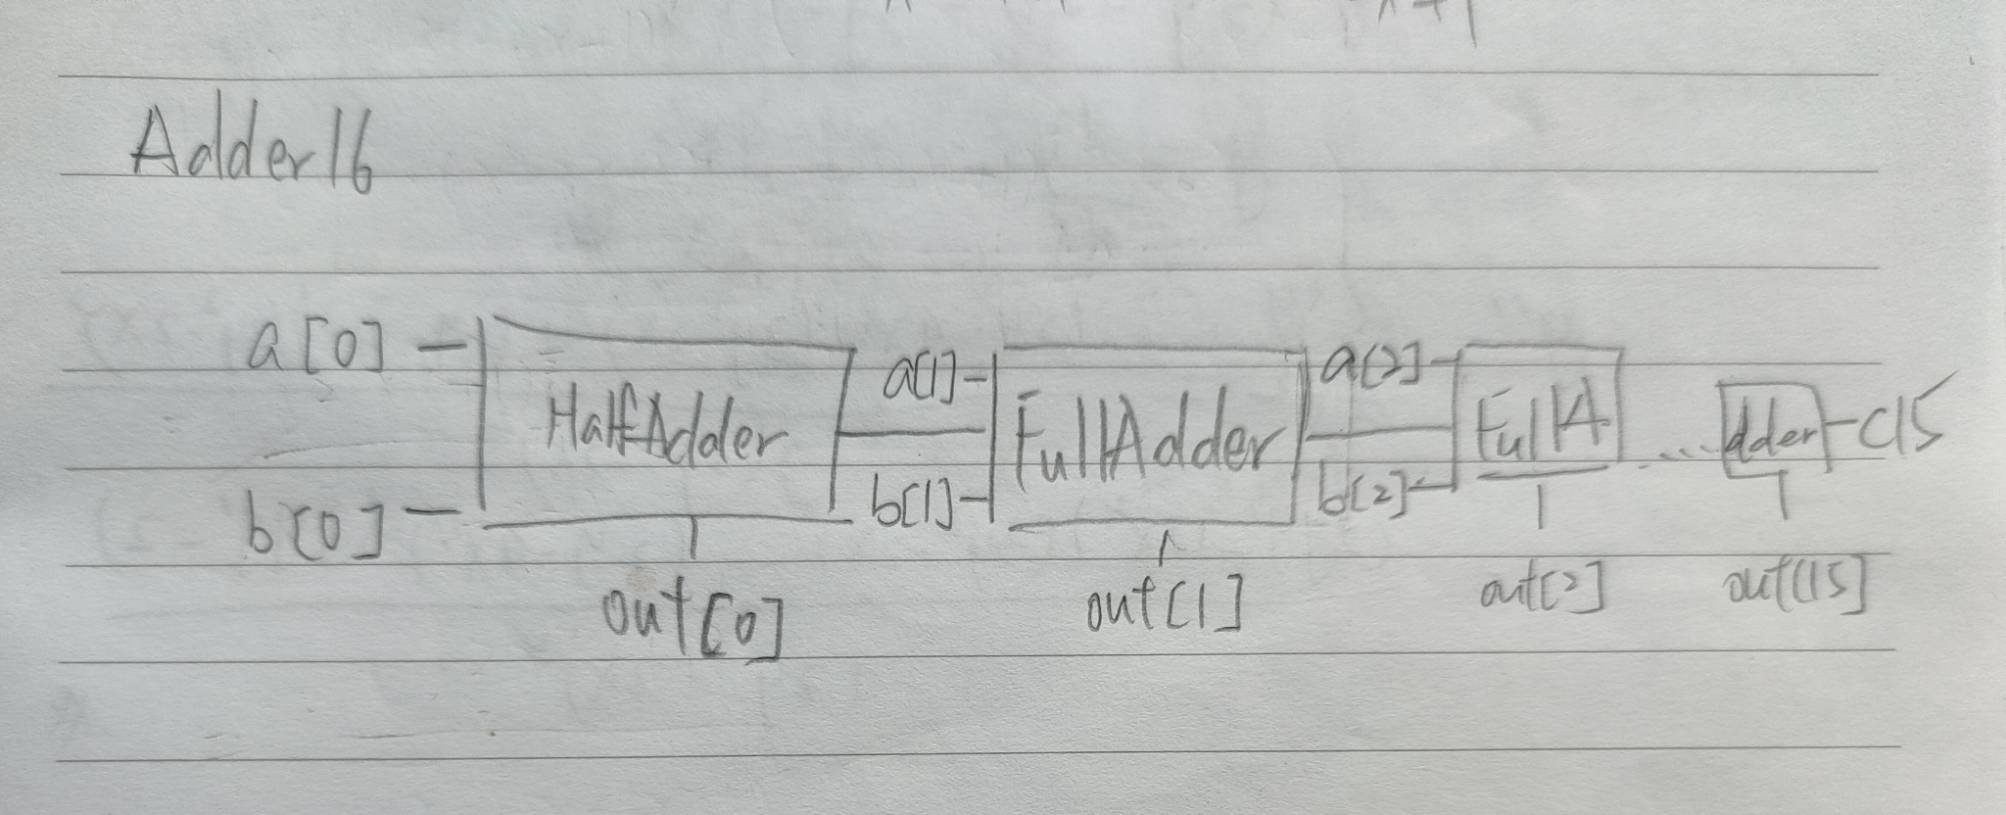 Adder16
a[0]
b[0]
HalfAdder
out[0]
a[1]
b[1]
FullAdder
out[1]
a[2]
b[2]
FullA
out[2]
...
dder
C15
out[15]